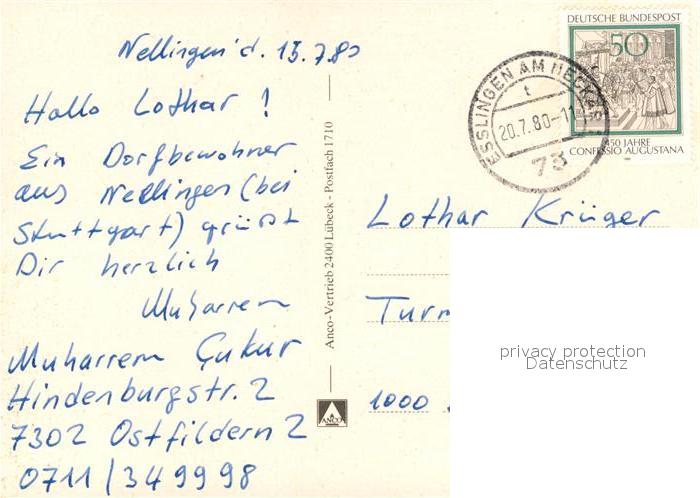 Nellingen d. 15.7.80
Hallo Lothar !
Ein Dorfbewohner
aus Nellingen (bei
Stuttgart) grüßt
Dir herzlich
Muharrem
Muharrem Çukur
Hindenburgstr. 2
7302 Ostfildern 2
0711/349998
Anco-Vertrieb 2400 Lübeck - Postfach 1710
ANCO
DEUTSCHE BUNDESPOST
50
450 JAHRE
CONFESSIO AUGUSTANA
ESSLINGEN AM NECKAR
t
20.7.80-11
73
Lothar Krüger
1000
privacy protection
Datenschutz